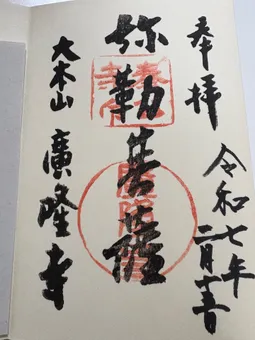 奉拝
令和七年
二月
弥勒菩薩
大本山 廣隆寺